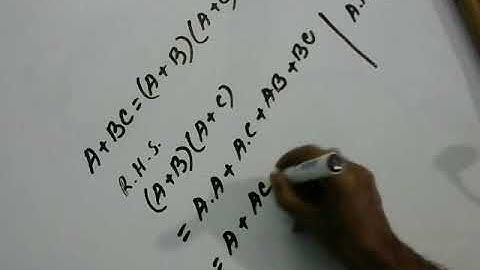 A+BC=(A+B)(A+C)
R.H.S.
(A+B)(A+C)
= A.A+A.C+AB+BC
= A+AC
A.